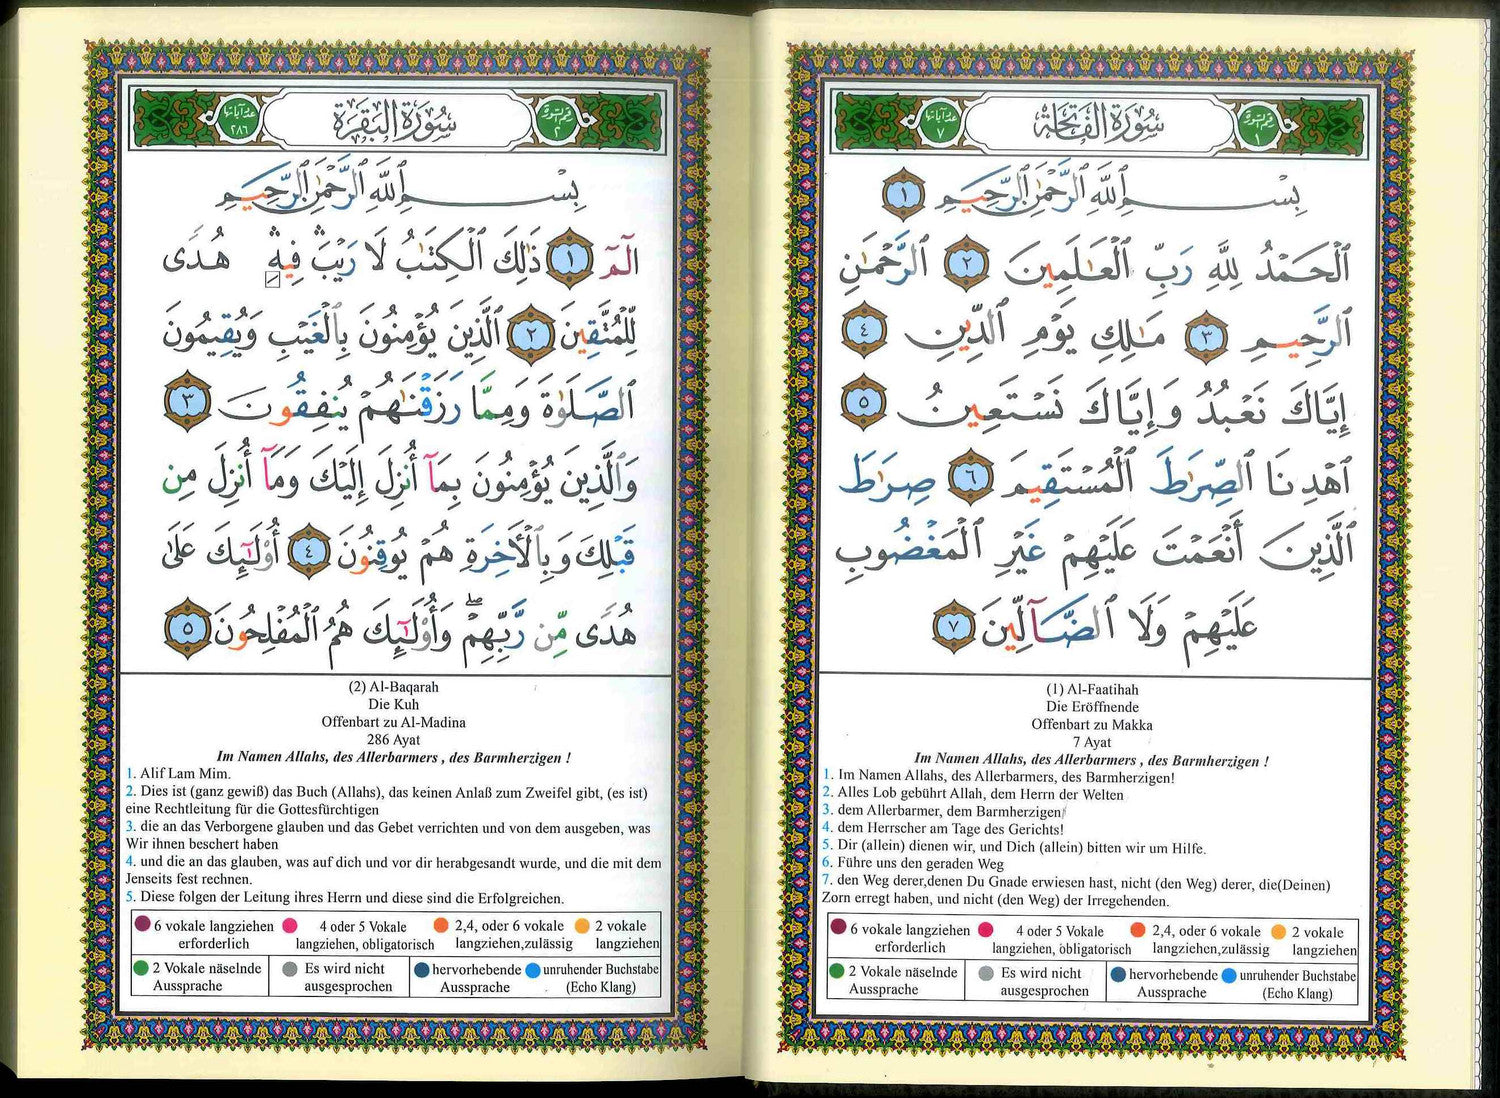 سُورَةُ الْفَاتِحَةِ
رقم السورة
١
عدد آياتها
٧
بِسْمِ ٱللَّهِ ٱلرَّحْمَٰنِ ٱلرَّحِيمِ ١
ٱلْحَمْدُ لِلَّهِ رَبِّ ٱلْعَٰلَمِينَ ٢ ٱلرَّحْمَٰنِ
ٱلرَّحِيمِ ٣ مَٰلِكِ يَوْمِ ٱلدِّينِ ٤
إِيَّاكَ نَعْبُدُ وَإِيَّاكَ نَسْتَعِينُ ٥
ٱهْدِنَا ٱلصِّرَٰطَ ٱلْمُسْتَقِيمَ ٦ صِرَٰطَ
ٱلَّذِينَ أَنْعَمْتَ عَلَيْهِمْ غَيْرِ ٱلْمَغْضُوبِ
عَلَيْهِمْ وَلَا ٱلضَّآلِّينَ ٧
(1) Al-Faatihah
Die Eröffnende
Offenbart zu Makka
7 Ayat
Im Namen Allahs, des Allerbarmers , des Barmherzigen !
1. Im Namen Allahs, des Allerbarmers, des Barmherzigen!
2. Alles Lob gebührt Allah, dem Herrn der Welten
3. dem Allerbarmer, dem Barmherzigen
4. dem Herrscher am Tage des Gerichts!
5. Dir (allein) dienen wir, und Dich (allein) bitten wir um Hilfe.
6. Führe uns den geraden Weg
7. den Weg derer,denen Du Gnade erwiesen hast, nicht (den Weg) derer, die(Deinen)
Zorn erregt haben, und nicht (den Weg) der Irregehenden.
6 vokale langziehen erforderlich
4 oder 5 Vokale langziehen, obligatorisch
2,4, oder 6 vokale langziehen,zulässig
2 vokale langziehen
2 Vokale näselnde Aussprache
Es wird nicht ausgesprochen
hervorhebende Aussprache
unruhender Buchstabe (Echo Klang)
سُورَةُ الْبَقَرَةِ
رقم السورة
٢
عدد آياتها
٢٨٦
بِسْمِ ٱللَّهِ ٱلرَّحْمَٰنِ ٱلرَّحِيمِ
الٓمٓ ١ ذَٰلِكَ ٱلْكِتَٰبُ لَا رَيْبَ ۛ فِيهِ ۛ هُدًى
لِّلْمُتَّقِينَ ٢ ٱلَّذِينَ يُؤْمِنُونَ بِٱلْغَيْبِ وَيُقِيمُونَ
ٱلصَّلَوٰةَ وَمِمَّا رَزَقْنَٰهُمْ يُنفِقُونَ ٣
وَٱلَّذِينَ يُؤْمِنُونَ بِمَآ أُنزِلَ إِلَيْكَ وَمَآ أُنزِلَ مِن
قَبْلِكَ وَبِٱلْءَاخِرَةِ هُمْ يُوقِنُونَ ٤ أُو۟لَٰٓئِكَ عَلَىٰ
هُدًى مِّن رَّبِّهِمْ ۖ وَأُو۟لَٰٓئِكَ هُمُ ٱلْمُفْلِحُونَ ٥
(2) Al-Baqarah
Die Kuh
Offenbart zu Al-Madina
286 Ayat
Im Namen Allahs, des Allerbarmers , des Barmherzigen !
1. Alif Lam Mim.
2. Dies ist (ganz gewiß) das Buch (Allahs), das keinen Anlaß zum Zweifel gibt, (es ist)
eine Rechtleitung für die Gottesfürchtigen
3. die an das Verborgene glauben und das Gebet verrichten und von dem ausgeben, was
Wir ihnen beschert haben
4. und die an das glauben, was auf dich und vor dir herabgesandt wurde, und die mit dem
Jenseits fest rechnen.
5. Diese folgen der Leitung ihres Herrn und diese sind die Erfolgreichen.
6 vokale langziehen erforderlich
4 oder 5 Vokale langziehen, obligatorisch
2,4, oder 6 vokale langziehen,zulässig
2 vokale langziehen
2 Vokale näselnde Aussprache
Es wird nicht ausgesprochen
hervorhebende Aussprache
unruhender Buchstabe (Echo Klang)